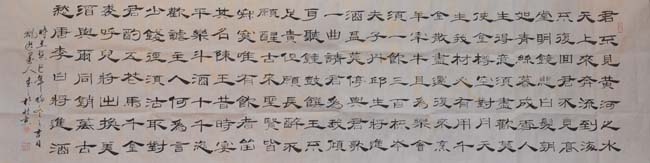 君不見黃河之水
天上來奔流到海
不復回君不見高
堂明鏡悲白髮朝
如青絲暮成雪人
生得意須盡歡莫
使金樽空對月天
生我材必有用千
金散盡還復來烹
羊宰牛且為樂會
須一飲三百杯岑
夫子丹邱生將進
酒君莫停與君歌
一曲請君為我傾
耳聽鐘鼓饌玉不
足貴但願長醉不
願醒古來聖賢皆
寂寞唯有飲者留
其名陳王昔時宴
平樂斗酒十千恣
歡謔主人何為言
少錢徑須沽取對
君酌五花馬千金
裘呼兒將出換美
酒與爾同銷萬古
愁唐李白將進酒